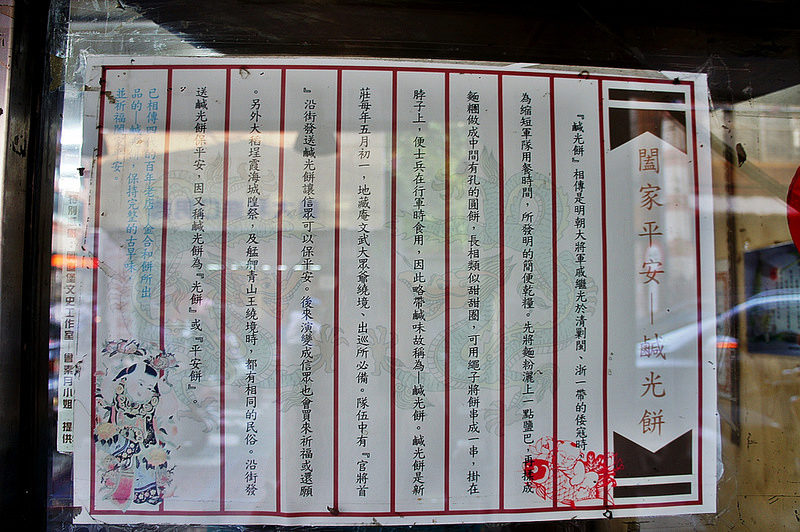 闔家平安—鹹光餅
『鹹光餅』相傳是明朝大將軍戚繼光於清剿閩、浙一帶的倭寇時,
為縮短軍隊用餐時間,所發明的簡便乾糧。先將麵粉灑上一點鹽巴,再揉成
麵糰做成中間有孔的圓餅,長相類似甜甜圈,可用繩子將餅串成一串,掛在
脖子上,便士兵在行軍時食用,因此略帶鹹味故稱為—鹹光餅。鹹光餅是新
莊每年五月初一,地藏庵文武大眾爺繞境、出巡所必備。隊伍中有『官將首
』沿街發送鹹光餅讓信眾可以保平安。後來演變成信眾也會買來祈福或還願
。另外大稻埕霞海城隍祭,及艋舺青山王繞境時,都有相同的民俗。沿街發
送鹹光餅保平安,因又稱鹹光餅為『光餅』或『平安餅』。
已相傳四 的百年老店 金合和餅所出
品的—鹹 ,保持完整的古早味,
並祈福闔 安。
特別 文史工作室 曾素月小姐 提供